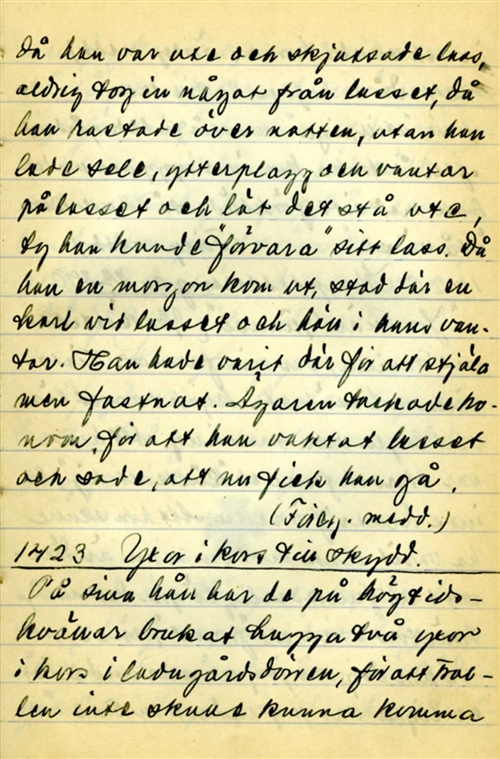 då han var ute och skjutsade lass,
aldrig tog in något från lasset, då
han rastade över natten, utan han
lade sele, ytterplagg och vantar
på lasset och lät det stå ute,
ty han kunde "förvara" sitt lass. Då
han en morgon kom ut, stod där en
karl vid lasset och höll i hans van-
tar. Han hade varit där för att stjäla
men fastnat. Ägaren tackade ho-
nom, för att han vaktat lasset
och sade, att nu fick han gå.
(Föreg. medd.)
1423 Yxor i kors till skydd.
På sina håll har de på högtids-
kvällar brukat hugga två yxor
i kors i ladugårdsdörren, för att Trol-
len inte skulle kunna komma